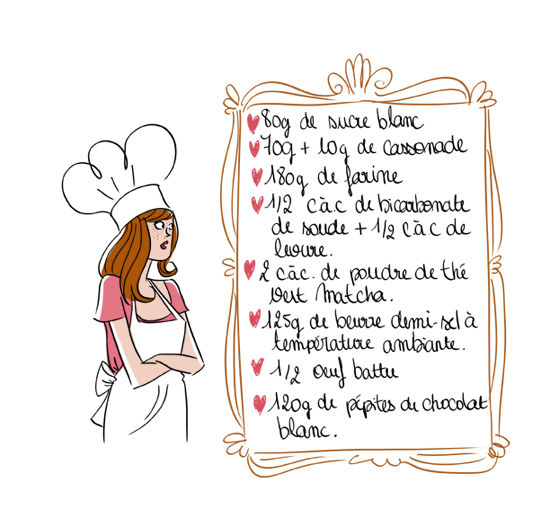 80g de sucre blanc
70g + 10g de cassonade
180g de farine
1/2 c à c de bicarbonate
de soude + 1/2 c à c de
levure.
2 càc. de poudre de thé
vert Matcha.
125g de beurre demi-sel à
température ambiante.
1/2 oeuf battu
120g de pépites de chocolat
blanc.